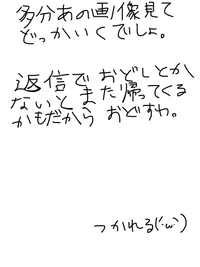 多分あの画像見て
どっかいくでしょ。
返信でおどしとか
ないとまた帰ってくる
かもだからおどすわ。
つかれる(´･ω･`)